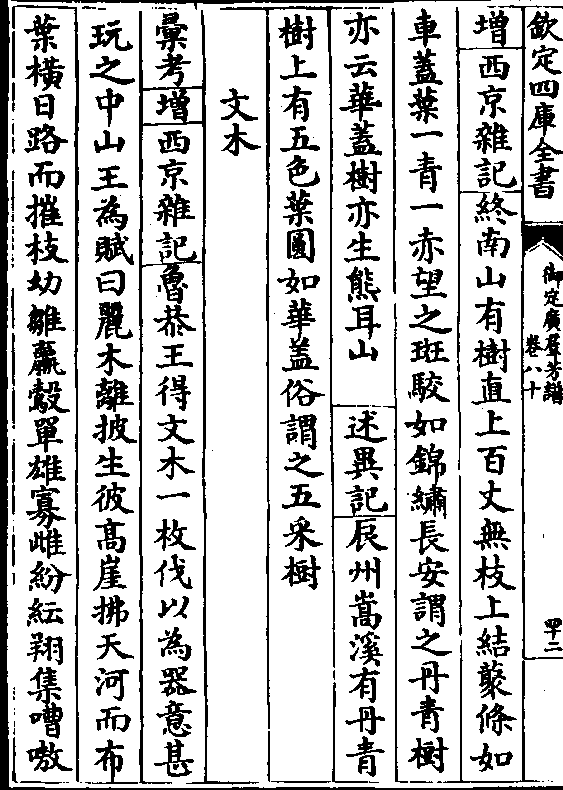 欽定四庫全書
御定廣羣芳譜
卷八十
四十二
增西京雜記終南山有樹直上百丈無枝上結藂條如
車蓋葉一青一赤望之斑駮如錦繡長安謂之丹青樹
亦云華蓋樹亦生熊耳山 述異記辰州嵩溪有丹青
樹上有五色葉圓如華蓋俗謂之五采樹
文木
彙考增西京雜記魯恭王得文木一枚伐以為器意甚
玩之中山王為賦曰麗木離披生彼高崖拂天河而布
葉橫日路而摧枝幼雛羸鷇單雄寡雌紛紜翔集嘈嗷